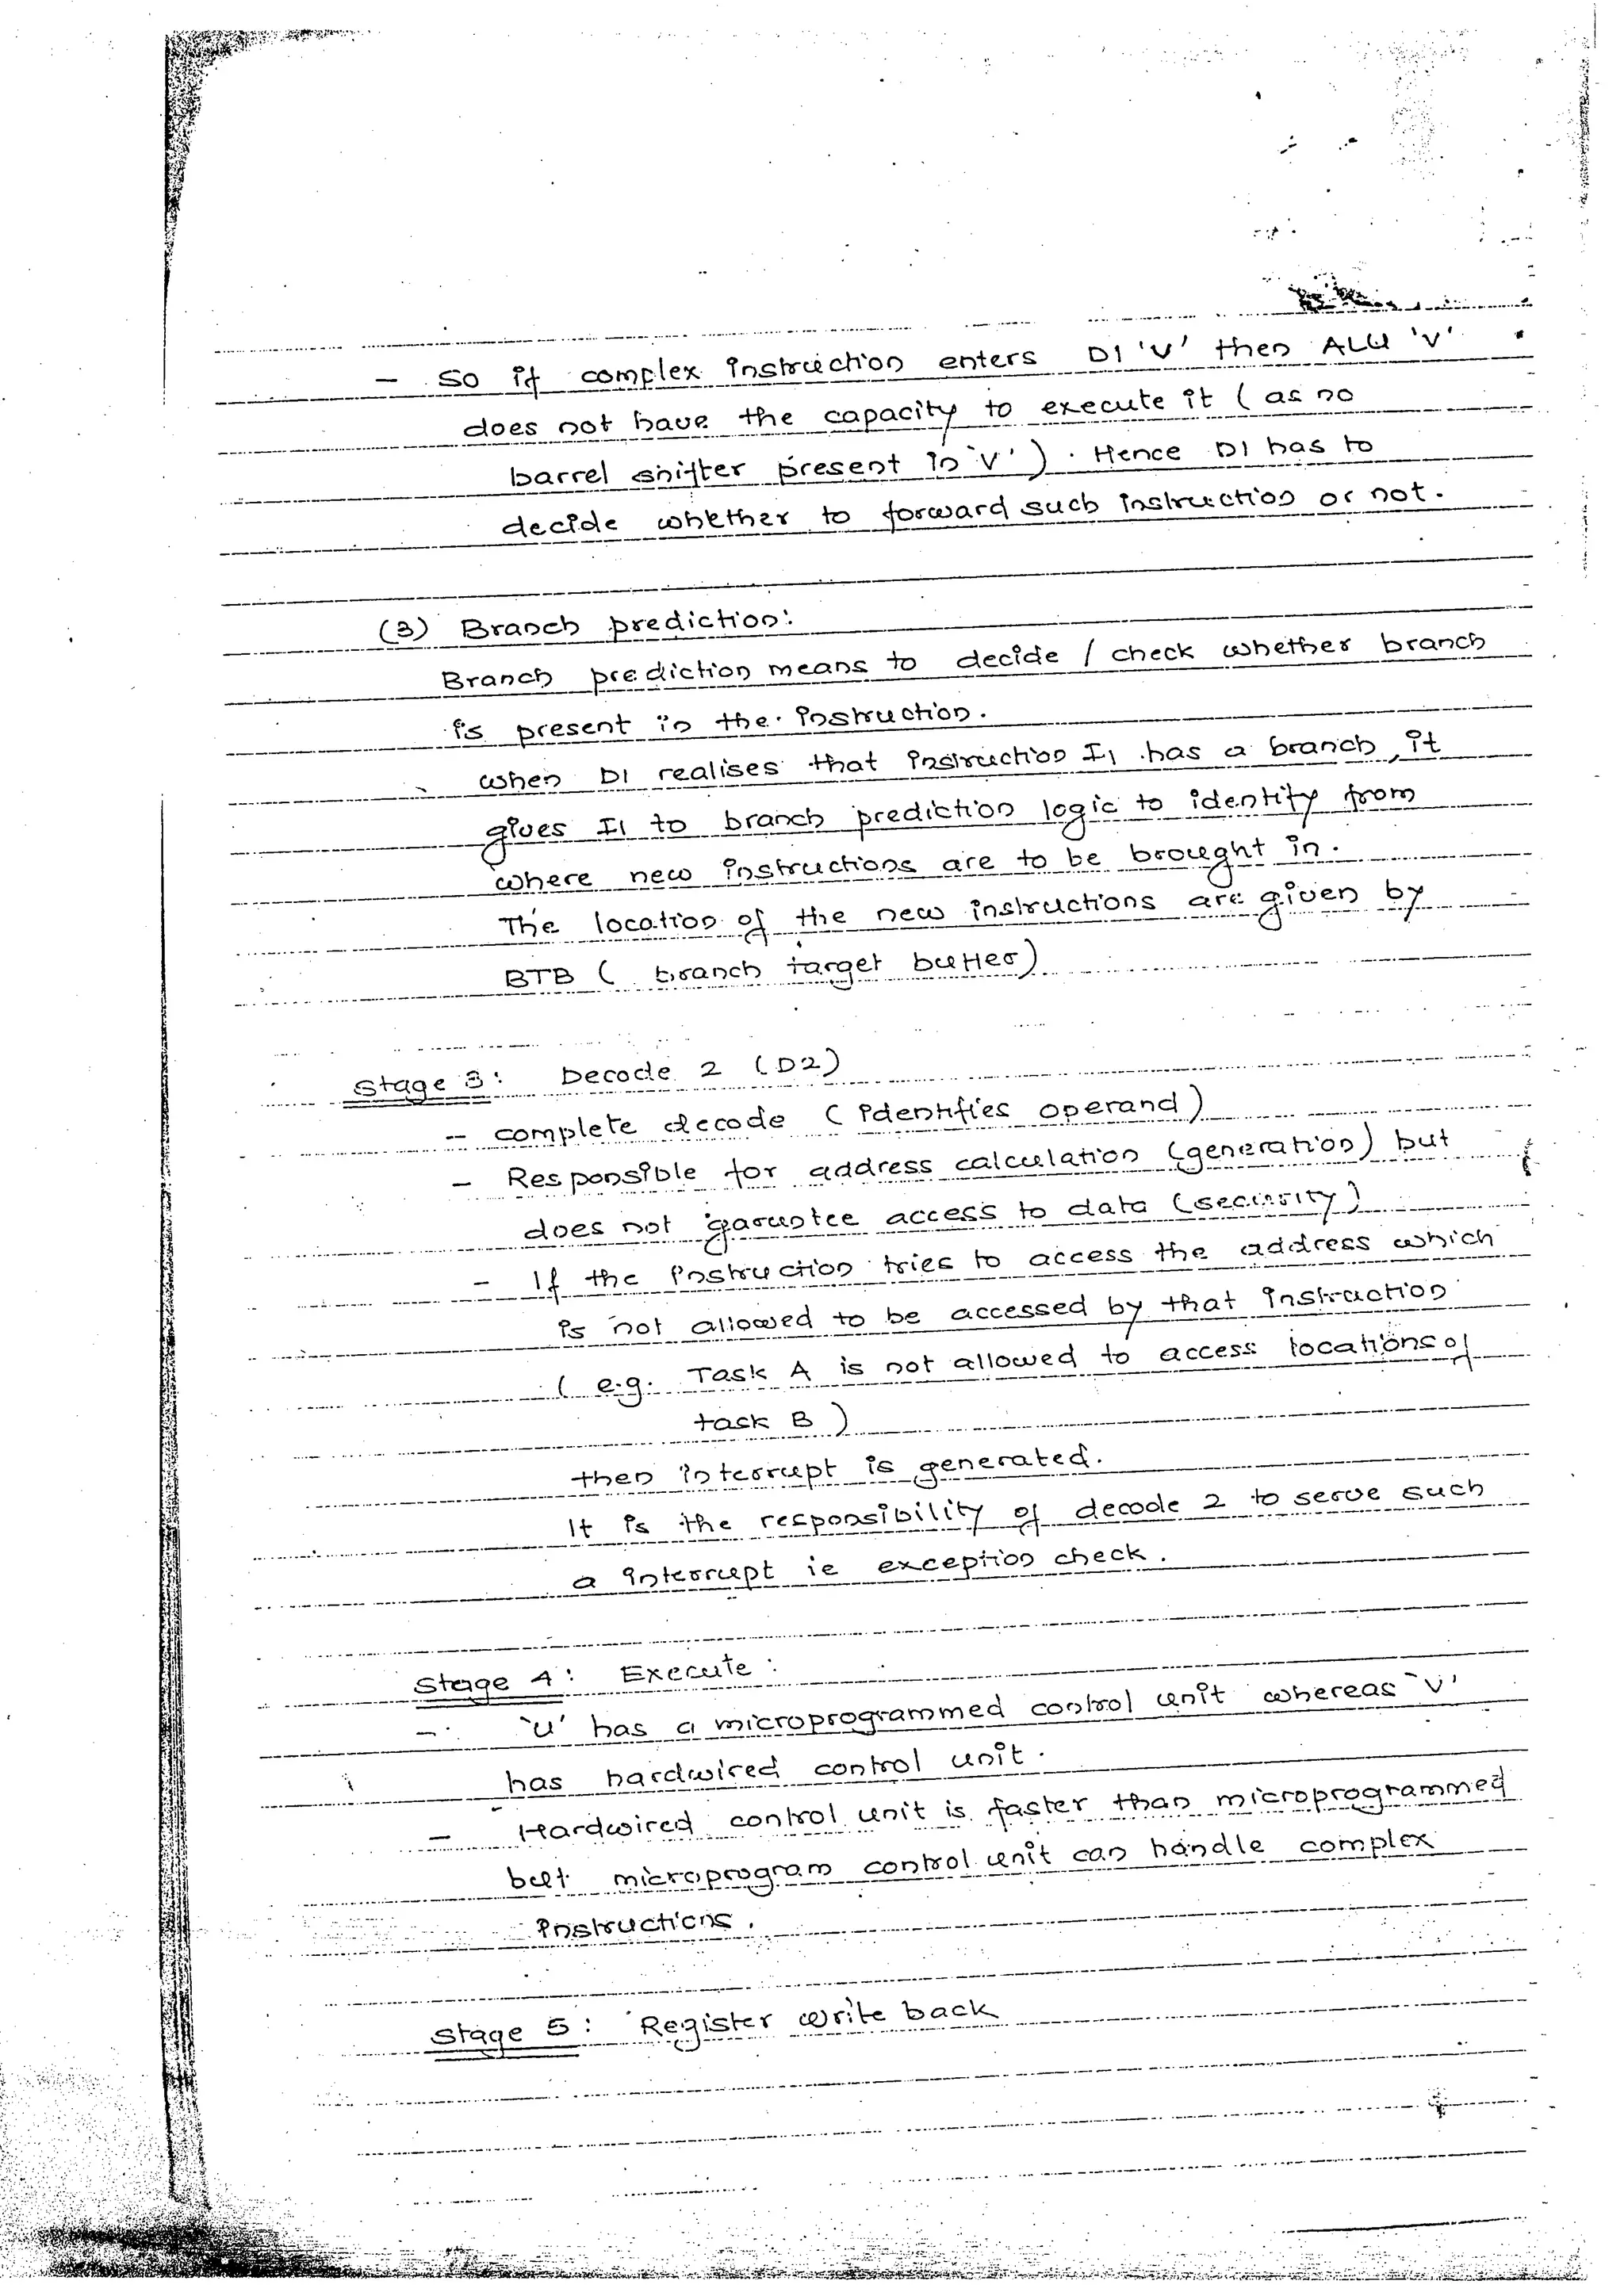 - so if complex instruction enters D1 'V' then ALU 'V'
does not have the capacity to execute it (as no
barrel shifter present in 'V'). Hence D1 has to
decide whether to forward such instruction or not.
(3) Branch prediction:
Branch prediction means to decide / check whether branch
is present in the instruction.
when D1 realises that instruction I1 has a branch, it
gives I1 to branch prediction logic to identify from
where new instructions are to be brought in.
The location of the new instructions are given by
BTB (branch target buffer)
Stage 3: Decode 2 (D2)
- complete decode (identifies operand)
- Responsible for address calculation (generation) but
does not garuntee access to data (security)
- If the instruction tries to access the address which
is not allowed to be accessed by that instruction
(e.g. Task A is not allowed to access locations of
task B)
then interrupt is generated.
It is the responsibility of decode 2 to serve such
a interrupt ie exception check.
Stage 4: Execute:
- 'U' has a microprogrammed control unit whereas 'V'
has hardwired control unit.
- Hardwired control unit is faster than microprogrammed
but microprogram control unit can handle complex
instructions.
Stage 5: Register write back